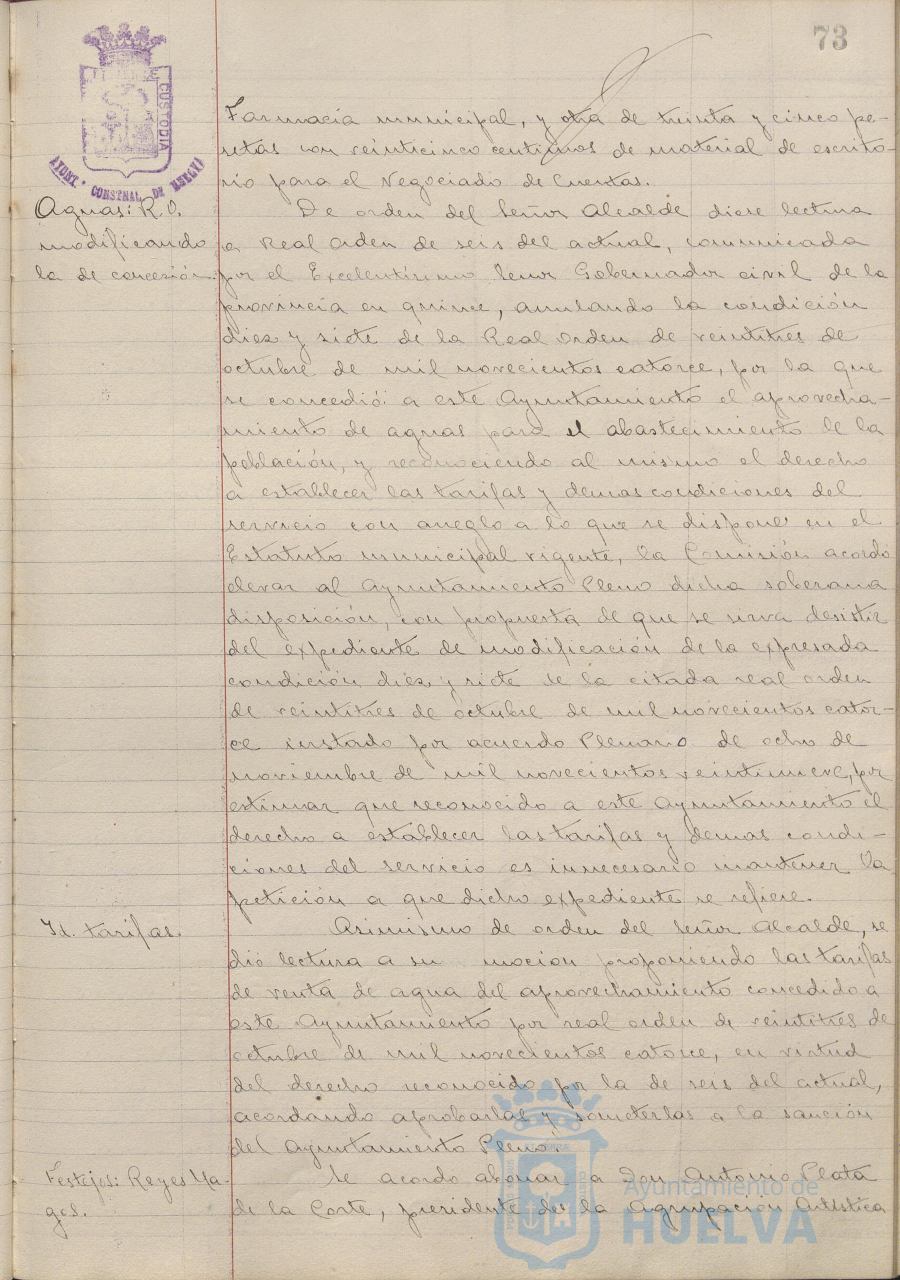 73
CUSTODIA
AYUNT. CONSTNAL. DE HUELVA
Farmacia municipal, y otra de treinta y cinco pe-
setas con veinticinco centimos de material de escrito-
rio para el Negociado de Cuentas.
Aguas: R.O.
modificando
la de concesión.
De orden del Señor Alcalde diese lectura
a Real Orden de seis del actual, comunicada
por el Excelentísimo Señor Gobernador civil de la
provincia en quince, anulando la condición
diez y siete de la Real Orden de veintitres de
octubre de mil novecientos catorce, por la que
se concedió a este Ayuntamiento el aprovecha-
miento de aguas para el abastecimiento de la
población, y reconociendo al mismo el derecho
a establecer las tarifas y demas condiciones del
servicio con arreglo a lo que se dispone en el
Estatuto municipal vigente, la Comisión acordó
elevar al Ayuntamiento Pleno dicha soberana
disposición, con propuesta de que se sirva desistir
del expediente de modificación de la expresada
condición diez y siete de la citada real orden
de veintitres de octubre de mil novecientos cator-
ce instado por acuerdo Plenario de ocho de
noviembre de mil novecientos veintinueve, por
estimar que reconocido a este Ayuntamiento el
derecho a establecer las tarifas y demas condi-
ciones del servicio es innecesario mantener la
petición a que dicho expediente se refiere.
Id. tarifas.
Asimismo de orden del Señor Alcalde, se
dió lectura a su moción proponiendo las tarifas
de venta de agua del aprovechamiento concedido a
este Ayuntamiento por real orden de veintitres de
octubre de mil novecientos catorce, en virtud
del derecho reconocido por la de seis del actual,
acordando aprobarlas y someterlas a la sanción
del Ayuntamiento Pleno.
Festejos: Reyes Ma-
gos.
Se acordo abonar a Don Antonio Plata
de la Corte, presidente de la Agrupación Artística
Ayuntamiento de
HUELVA